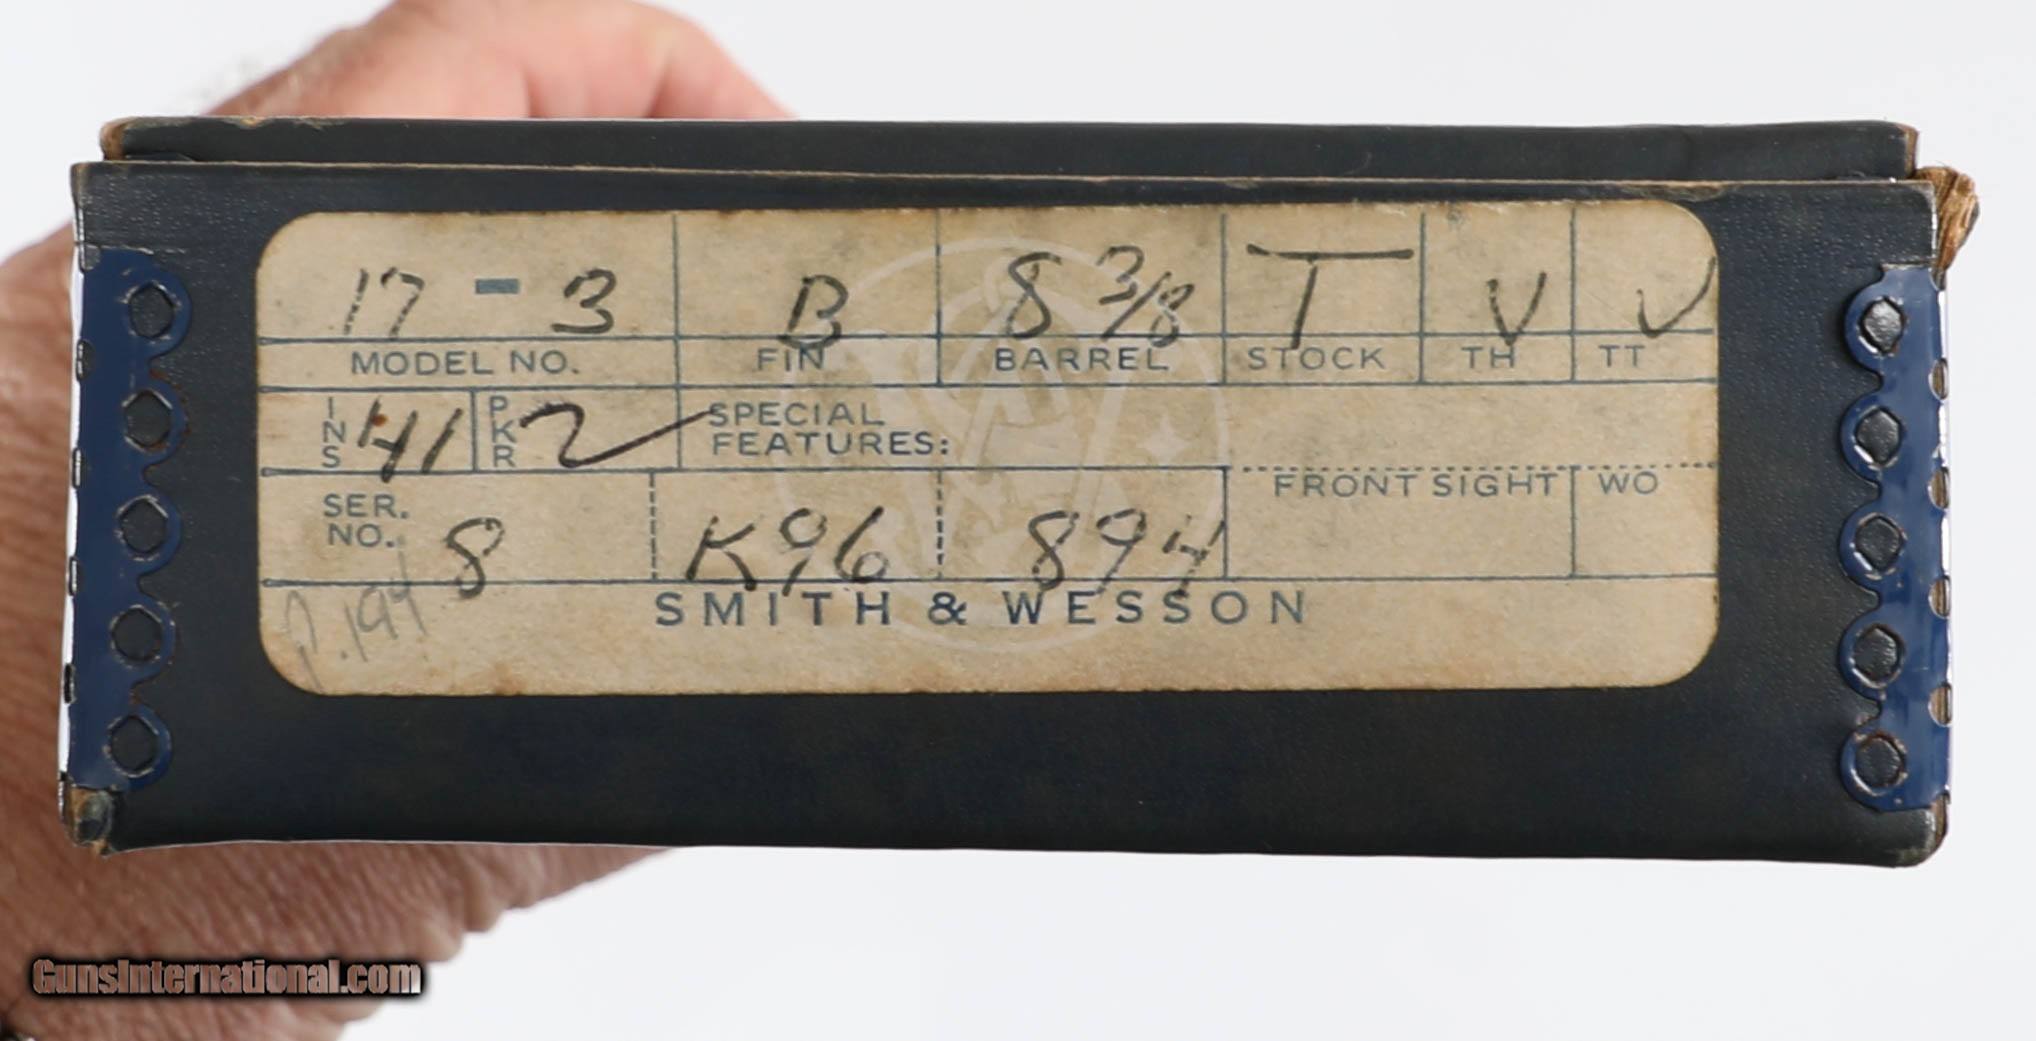 17 - 3 B 8 3/8 T V V
MODEL NO. FIN BARREL STOCK TH TT
INS 41 PKR 2 SPECIAL FEATURES:
SER. NO. 8 K96 894 FRONT SIGHT WO
P.194
SMITH & WESSON
GunsInternational.com